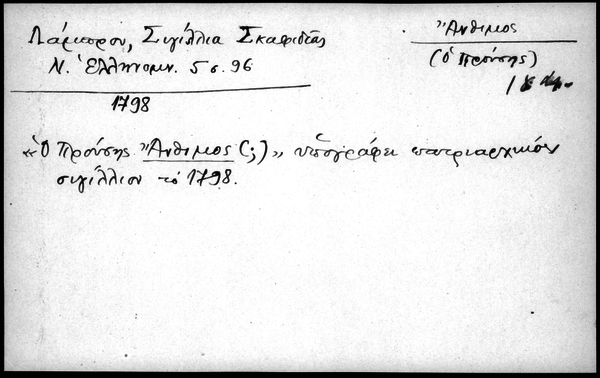 Λάμπρου, Σιγίλλια Σκαφιδιᾶς
Ν. Ἑλληνομν. 5 σ. 96
1798
Ἄνθιμος
(ὁ Προύσης)
18
«Ὁ Προύσης Ἄνθιμος (;)» ὑπογράφει πατριαρχικόν
σιγίλλιον τό 1798.